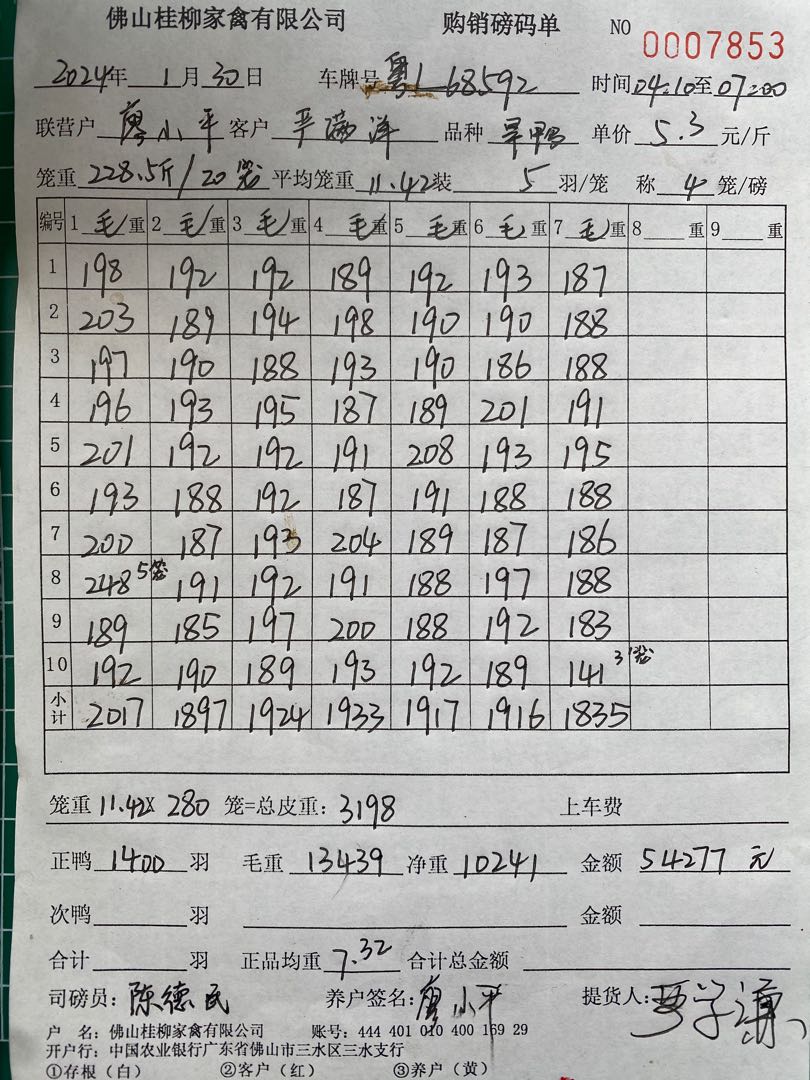 佛山桂柳家禽有限公司 购销磅码单 NO 0007853
2024年 1月30日 车牌号 粤L68592 时间04:10至07:00
联营户 廖小平 客户 严满洋 品种 旱鸭 单价 5.3 元/斤
笼重 228.5斤/20笼 平均笼重 11.42 装 5 羽/笼 称 4 笼/磅
编号 1 毛/重 2 毛/重 3 毛/重 4 毛重 5 毛重 6 毛 重 7 毛 重 8 重 9 重
1 198 192 192 189 192 193 187
2 203 189 194 198 190 190 188
3 197 190 188 193 190 186 188
4 196 193 195 187 189 201 191
5 201 192 192 191 208 193 195
6 193 188 192 187 191 188 188
7 200 187 193 204 189 187 186
8 248 5笼 191 192 191 188 197 188
9 189 185 197 200 188 192 183
10 192 190 189 193 192 189 141 3笼
小计 2017 1897 1924 1933 1917 1916 1835
笼重 11.42X 280 笼=总皮重: 3198 上车费
正鸭 1400 羽 毛重 13439 净重 10241 金额 54277 元
次鸭 羽 金额
合计 羽 正品均重 7.32 合计总金额
司磅员: 陈德民 养户签名: 廖小平 提货人:
户 名: 佛山桂柳家禽有限公司 账号: 444 401 010 400 169 29
开户行: 中国农业银行广东省佛山市三水区三水支行
①存根(白) ②客户(红) ③养户(黄)